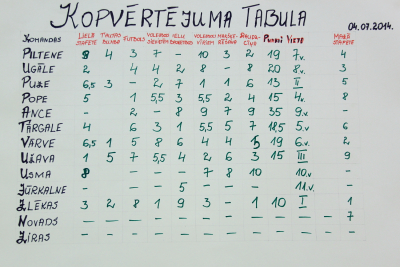 KOPVĒRTĒJUMA TABULA
04.07.2014.
KOMANDAS LIELĀ STAFETE FUTBOLS PUNKTI VIETA MAZĀ STAFETE
PILTENE 8 4 3 7 - - 10 3 2 19 7.v. 4
UGĀLE 2 4 4 2 8 - 8 20 8.v. 3
PUZE 6,5 3 - 2 7 1 1 6 13 II 5
POPE 5 1 5,5 3 5,5 2 4 15 4.v. 8
ANCE - 2 - 8 9 7 9 35 9.v. -
TĀRGALE 4 6 3 1 5,5 5 7 18,5 5.v 6
VĀRVE 6,5 1 5 8 6 4 4 5 19 6.v. 2
UŽAVA 1 5 7 5,5 4 2 6 3 15 III 9
USMA 8 - - - 7 8 10 10.v -
JŪRKALNE - - 5 - - - 11.v. -
ZLĒKAS 3 2 8 1 9 3 - 1 10 I 1
NOVADS - - - - - - - - - - - 7
ZIRAS - - - - - - - - - - -